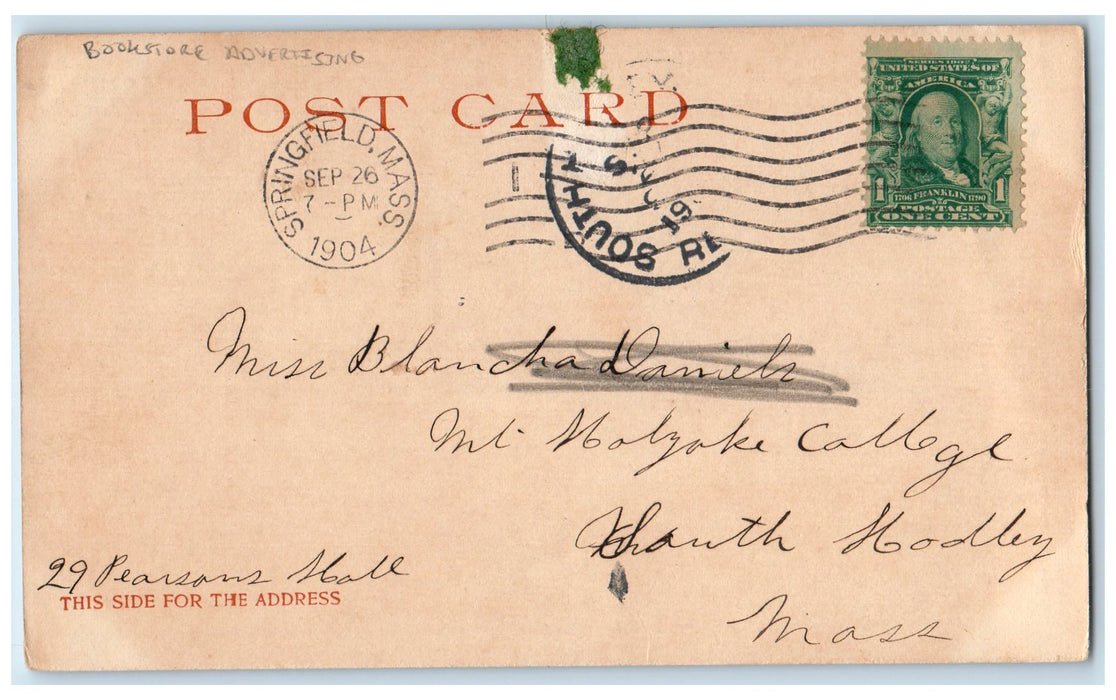 BOOKSTORE ADVERTISING
POST CARD
SPRINGFIELD, MASS.
SEP 26
7 - PM
1904
1
SOUTH
19
SERIES 1902
UNITED STATES OF
AMERICA
1706 FRANKLIN 1790
1 POSTAGE 1
ONE CENT
Miss Blancha Daniels
Mt Holyoke College
South Hadley
29 Pearsons Hall
THIS SIDE FOR THE ADDRESS
Mass